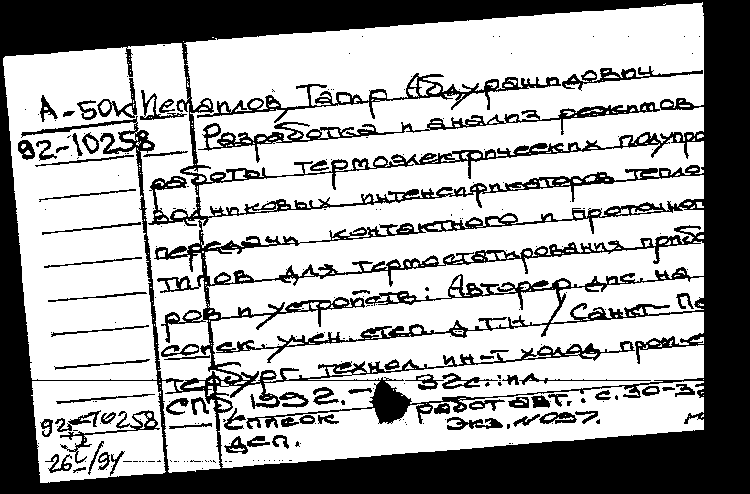 А-50К Исмаилов, Тагир Абдурашидович
92-10258 Разработка и анализ режимов
работы термоэлектрических полупро
водниковых интенсификаторов тепло
передачи контактного и проточного
типов для термостатирования прибо
ров и устройств: Автореф. дис. на
соиск. учен. степ. д.т.н. / Санкт-Пе
тербург. технол. ин-т холод. пром-с
СПб, 1992. - 32с.: ил.
92-10258 Список работ авт.: с. 30-32
деп. Экз. №097.
26 /94